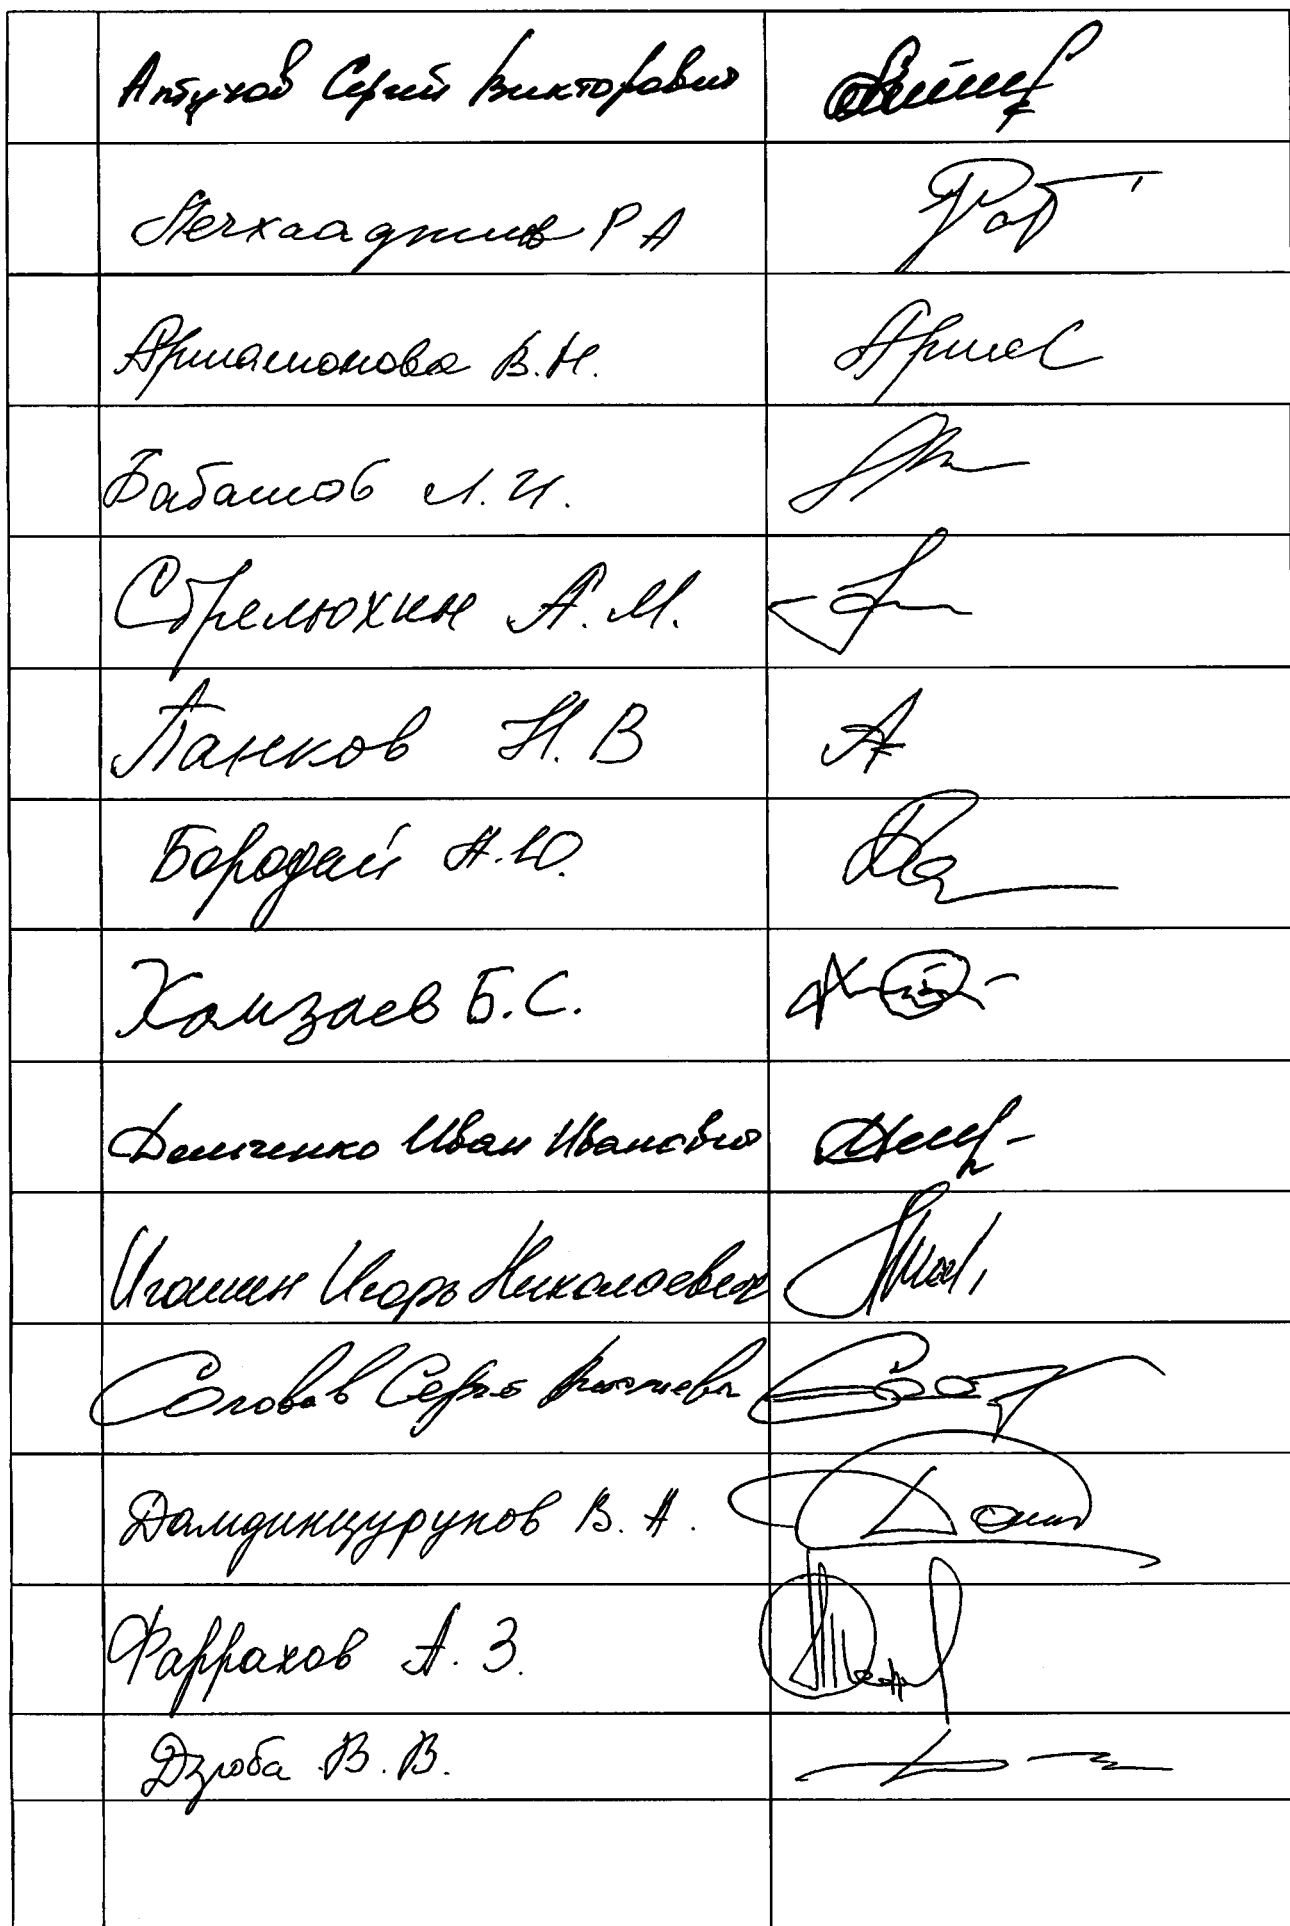 Алтухов Сергей Викторович
Р А
Артамонова В.Н.
Бабашов Л.И.
Стрелюхин А.М.
Панков Н.В
Бородай А.Ю.
Хамзаев Б.С.
Демченко Иван Иванович
Игошин Игорь Николаевич
Сергей
Дамдинцурунов В.А.
Фаррахов А.З.
Дзюба В.В.